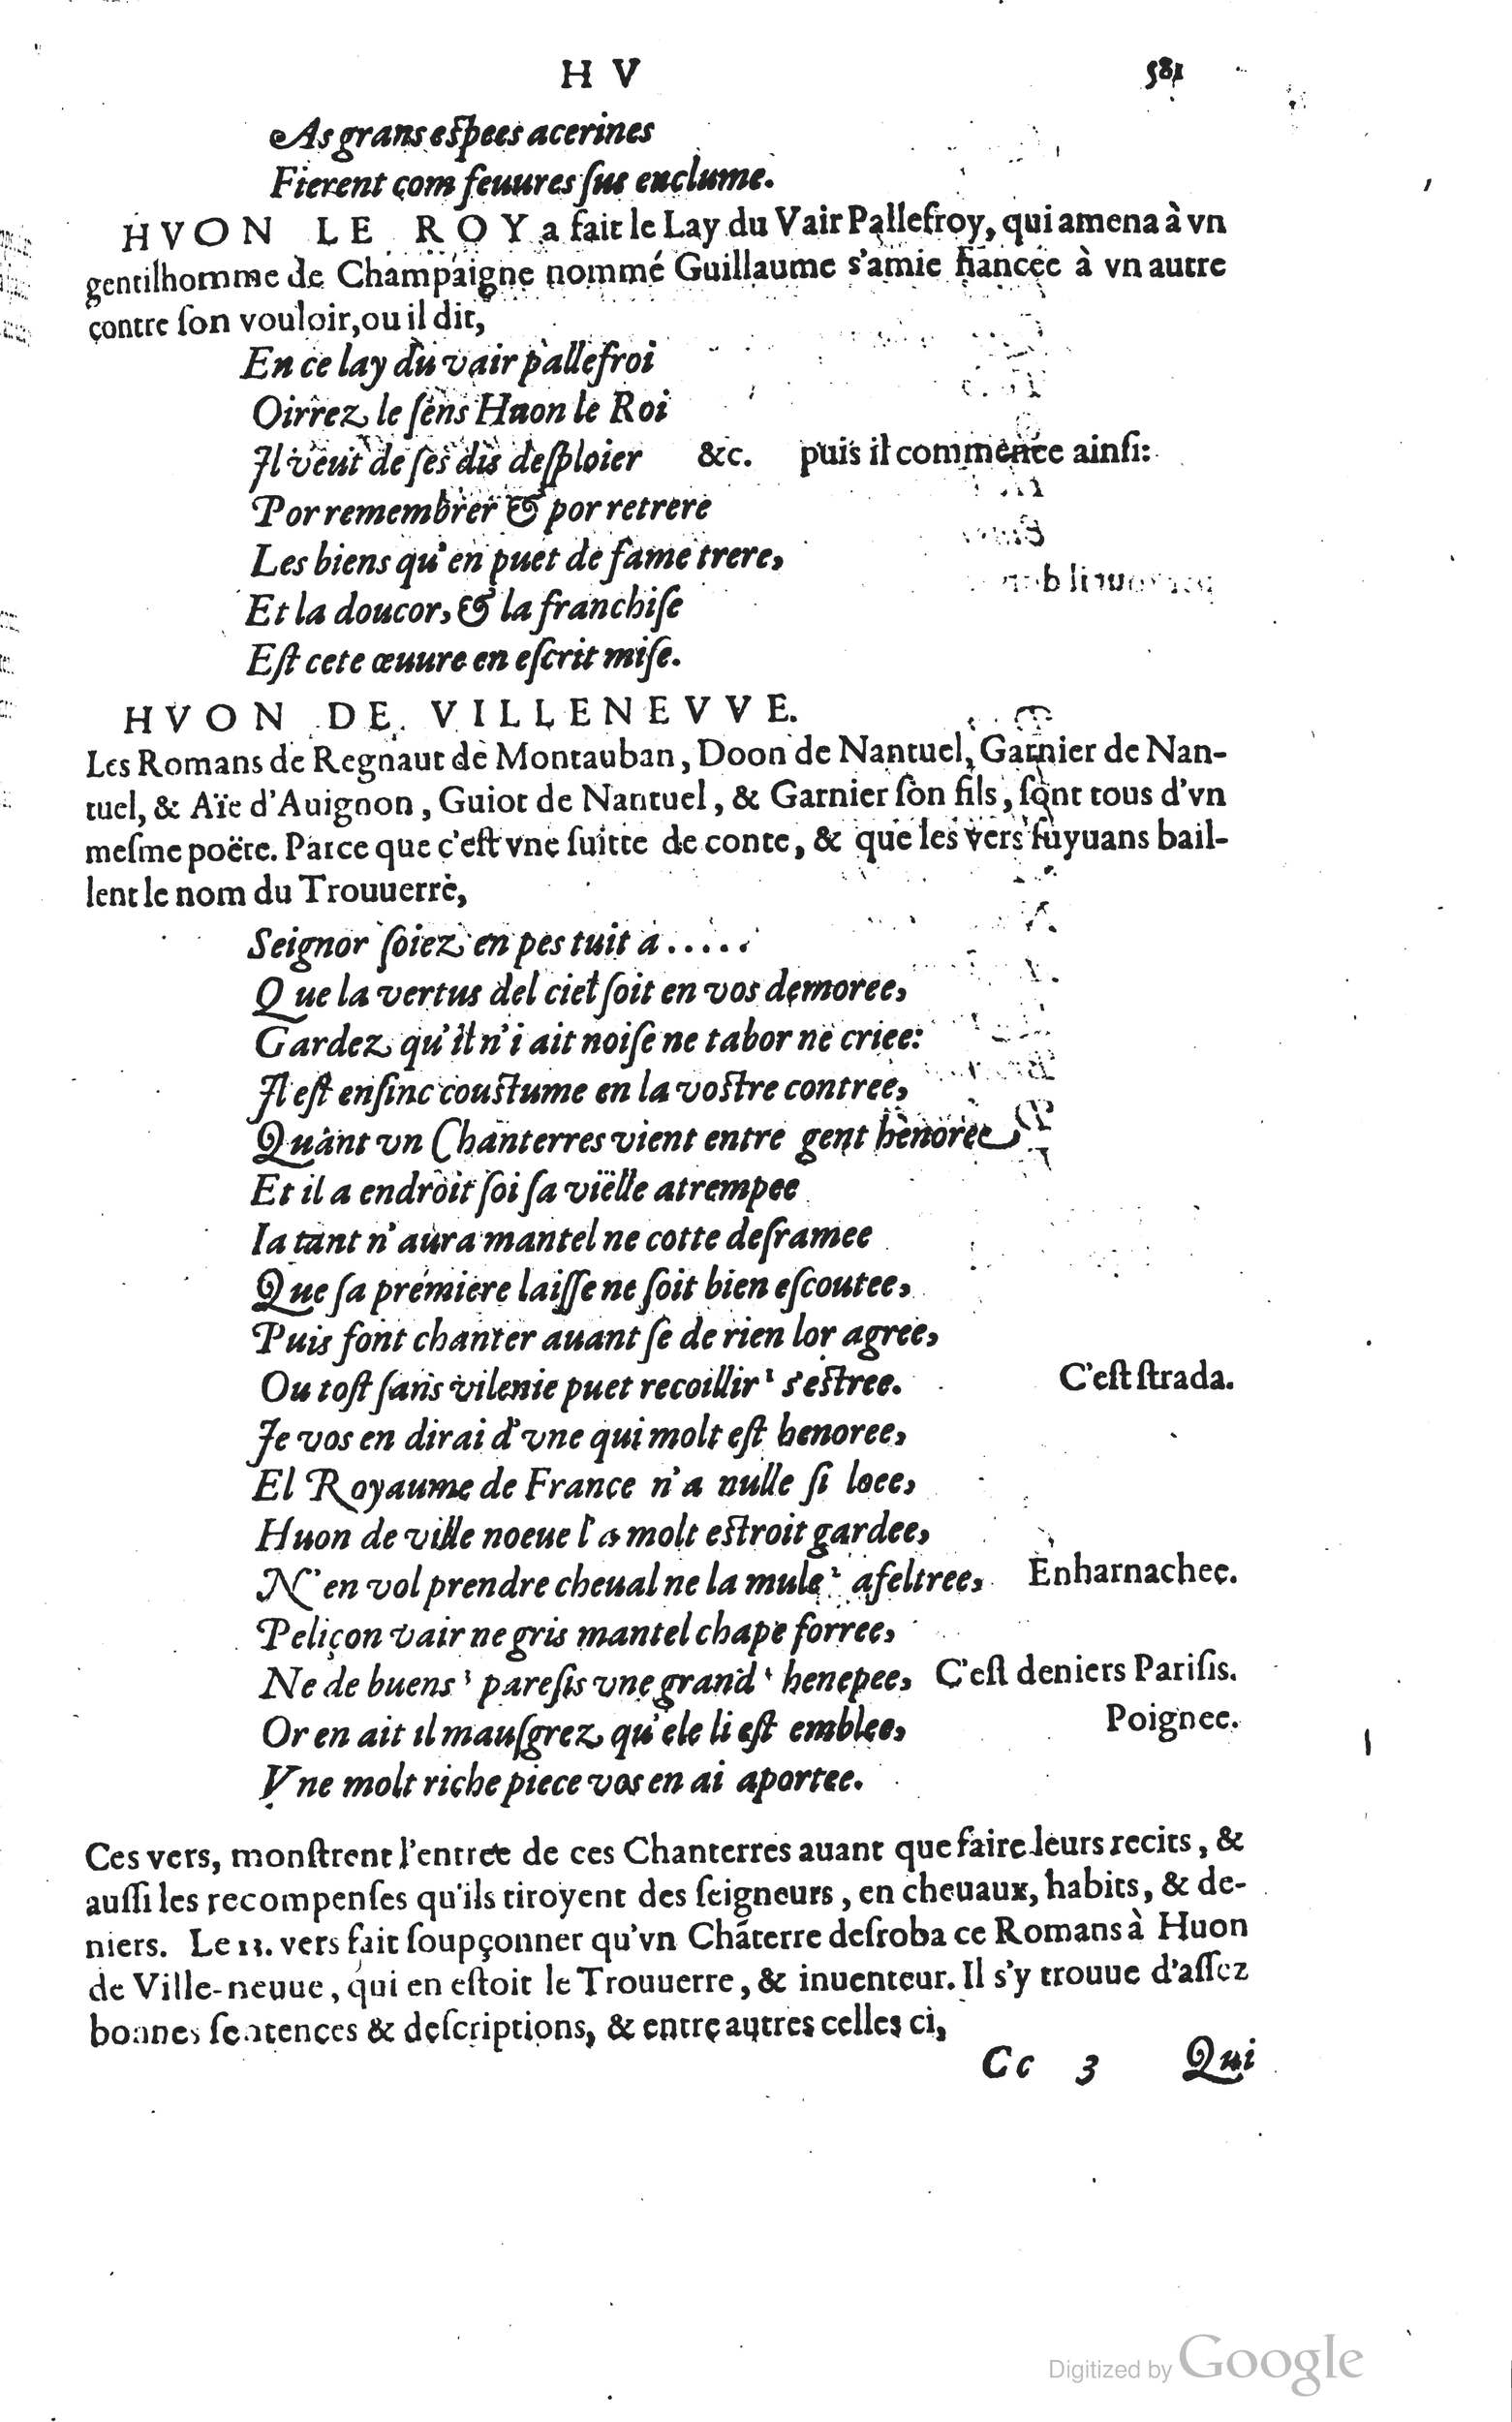 H V 581
As grans espees acerines
Fierent com feuures sus enclume.
HVON LE ROY a fait le Lay du Vair Pallefroy, qui amena à vn
gentilhomme de Champaigne nommé Guillaume s'amie fiancée à vn autre
contre ſon vouloir, ou il dit,
En ce lay du vair pallefroi
Oirrez le ſens Huon le Roi
Il veut de ſes dis deſploier &c. puis il commence ainſi:
Por remembrer & por retrere
Les biens qu'en puet de fame trere,
Et la doucor, & la franchiſe
Eſt cete œuure en eſcrit miſe.
HVON DE VILLENEVVE.
Les Romans de Regnaut de Montauban, Doon de Nantuel, Garnier de Nan-
tuel, & Aïe d'Auignon, Guiot de Nantuel, & Garnier ſon fils, ſont tous d'vn
meſme poëte. Parce que c'eſt vne ſuitte de conte, & que les vers ſuyuans bail-
lent le nom du Trouuerre,
Seignor ſoiez en pes tuit a.....
Que la vertus del ciel ſoit en vos demoree,
Gardez qu'il n'i ait noiſe ne tabor ne criee:
Il eſt enſinc couſtume en la voſtre contree,
Quant vn Chanterres vient entre gent henoree
Et il a endroit ſoi ſa viëlle atrempee
Ia tant n'aura mantel ne cotte deſramee
Que ſa premiere laiſſe ne ſoit bien eſcoutee,
Puis font chanter auant ſe de rien lor agree,
Ou toſt ſans vilenie puet recoillir ¹ s'eſtree. C'eſt ſtrada.
Je vos en dirai d'vne qui molt eſt henoree,
El Royaume de France n'a nulle ſi loee,
Huon de ville noeue l'a molt eſtroit gardee,
N'en vol prendre cheual ne la mule ² afeltree, Enharnachee.
Peliçon vair ne gris mantel chape forree,
Ne de buens ³ pareſis vne grand ⁴ henepee, C'eſt deniers Pariſis.
Or en ait il mauſgrez qu'ele li eſt emblee, Poignee.
Vne molt riche piece vos en ai aportee.
Ces vers, monſtrent l'entree de ces Chanterres auant que faire leurs recits, &
auſſi les recompenſes qu'ils tiroyent des ſeigneurs, en cheuaux, habits, & de-
niers. Le 13. vers fait ſoupçonner qu'vn Chāterre deſroba ce Romans à Huon
de Ville-neuue, qui en eſtoit le Trouuerre, & inuenteur. Il s'y trouue d'aſſez
bonnes ſentences & deſcriptions, & entre autres celles ci,
Cc 3 Qui
Digitized by Google